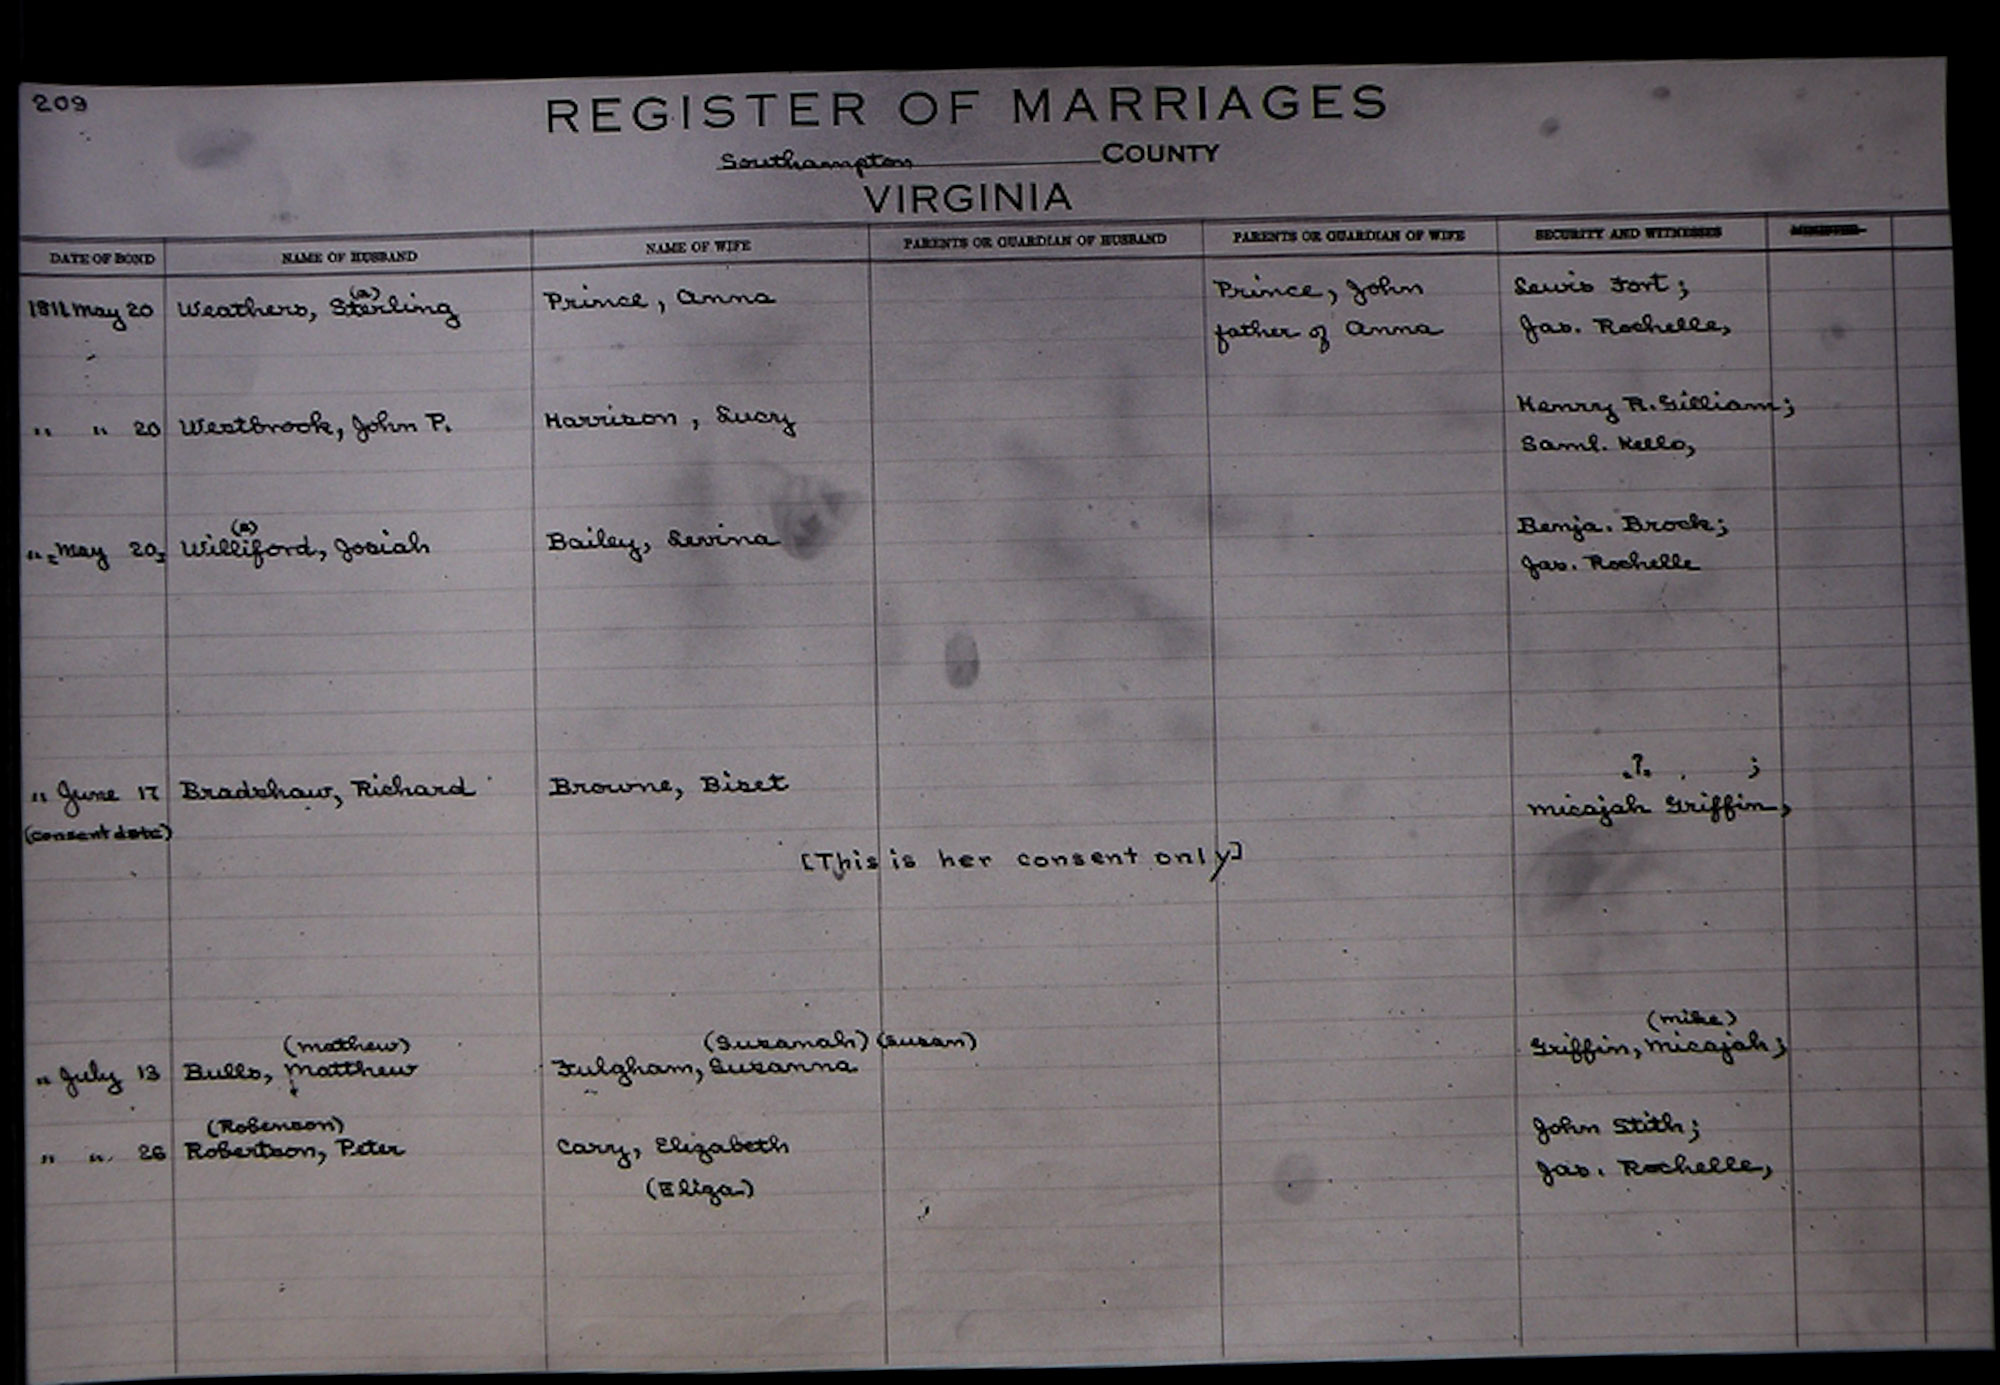 209
REGISTER OF MARRIAGES
Southampton COUNTY
VIRGINIA
DATE OF BOND NAME OF HUSBAND NAME OF WIFE PARENTS OR GUARDIAN OF HUSBAND PARENTS OR GUARDIAN OF WIFE SECURITY AND WITNESSES MINISTER
(a)
1811 May 20 Weathers, Sterling Prince, Anna Prince, John Lewis Fort;
father of Anna Jas. Rochelle,
" " 20 Westbrook, John P. Harrison, Lucy Henry R. Gilliam;
Saml. Kello,
(a)
" May 20, Williford, Josiah Bailey, Levina Benja. Brock;
Jas. Rochelle
" June 17 Bradshaw, Richard Browne, Biset ? ;
(consent date) Micajah Griffin,
[This is her consent only]
(Mathew) (Suzanah) (Susan) (Mike)
" July 13 Bulls, Matthew Fulgham, Suzanna Griffin, Micajah;
(Robenson)
" " 26 Robertson, Peter Cary, Elizabeth John Stith;
(Eliza) Jas. Rochelle,